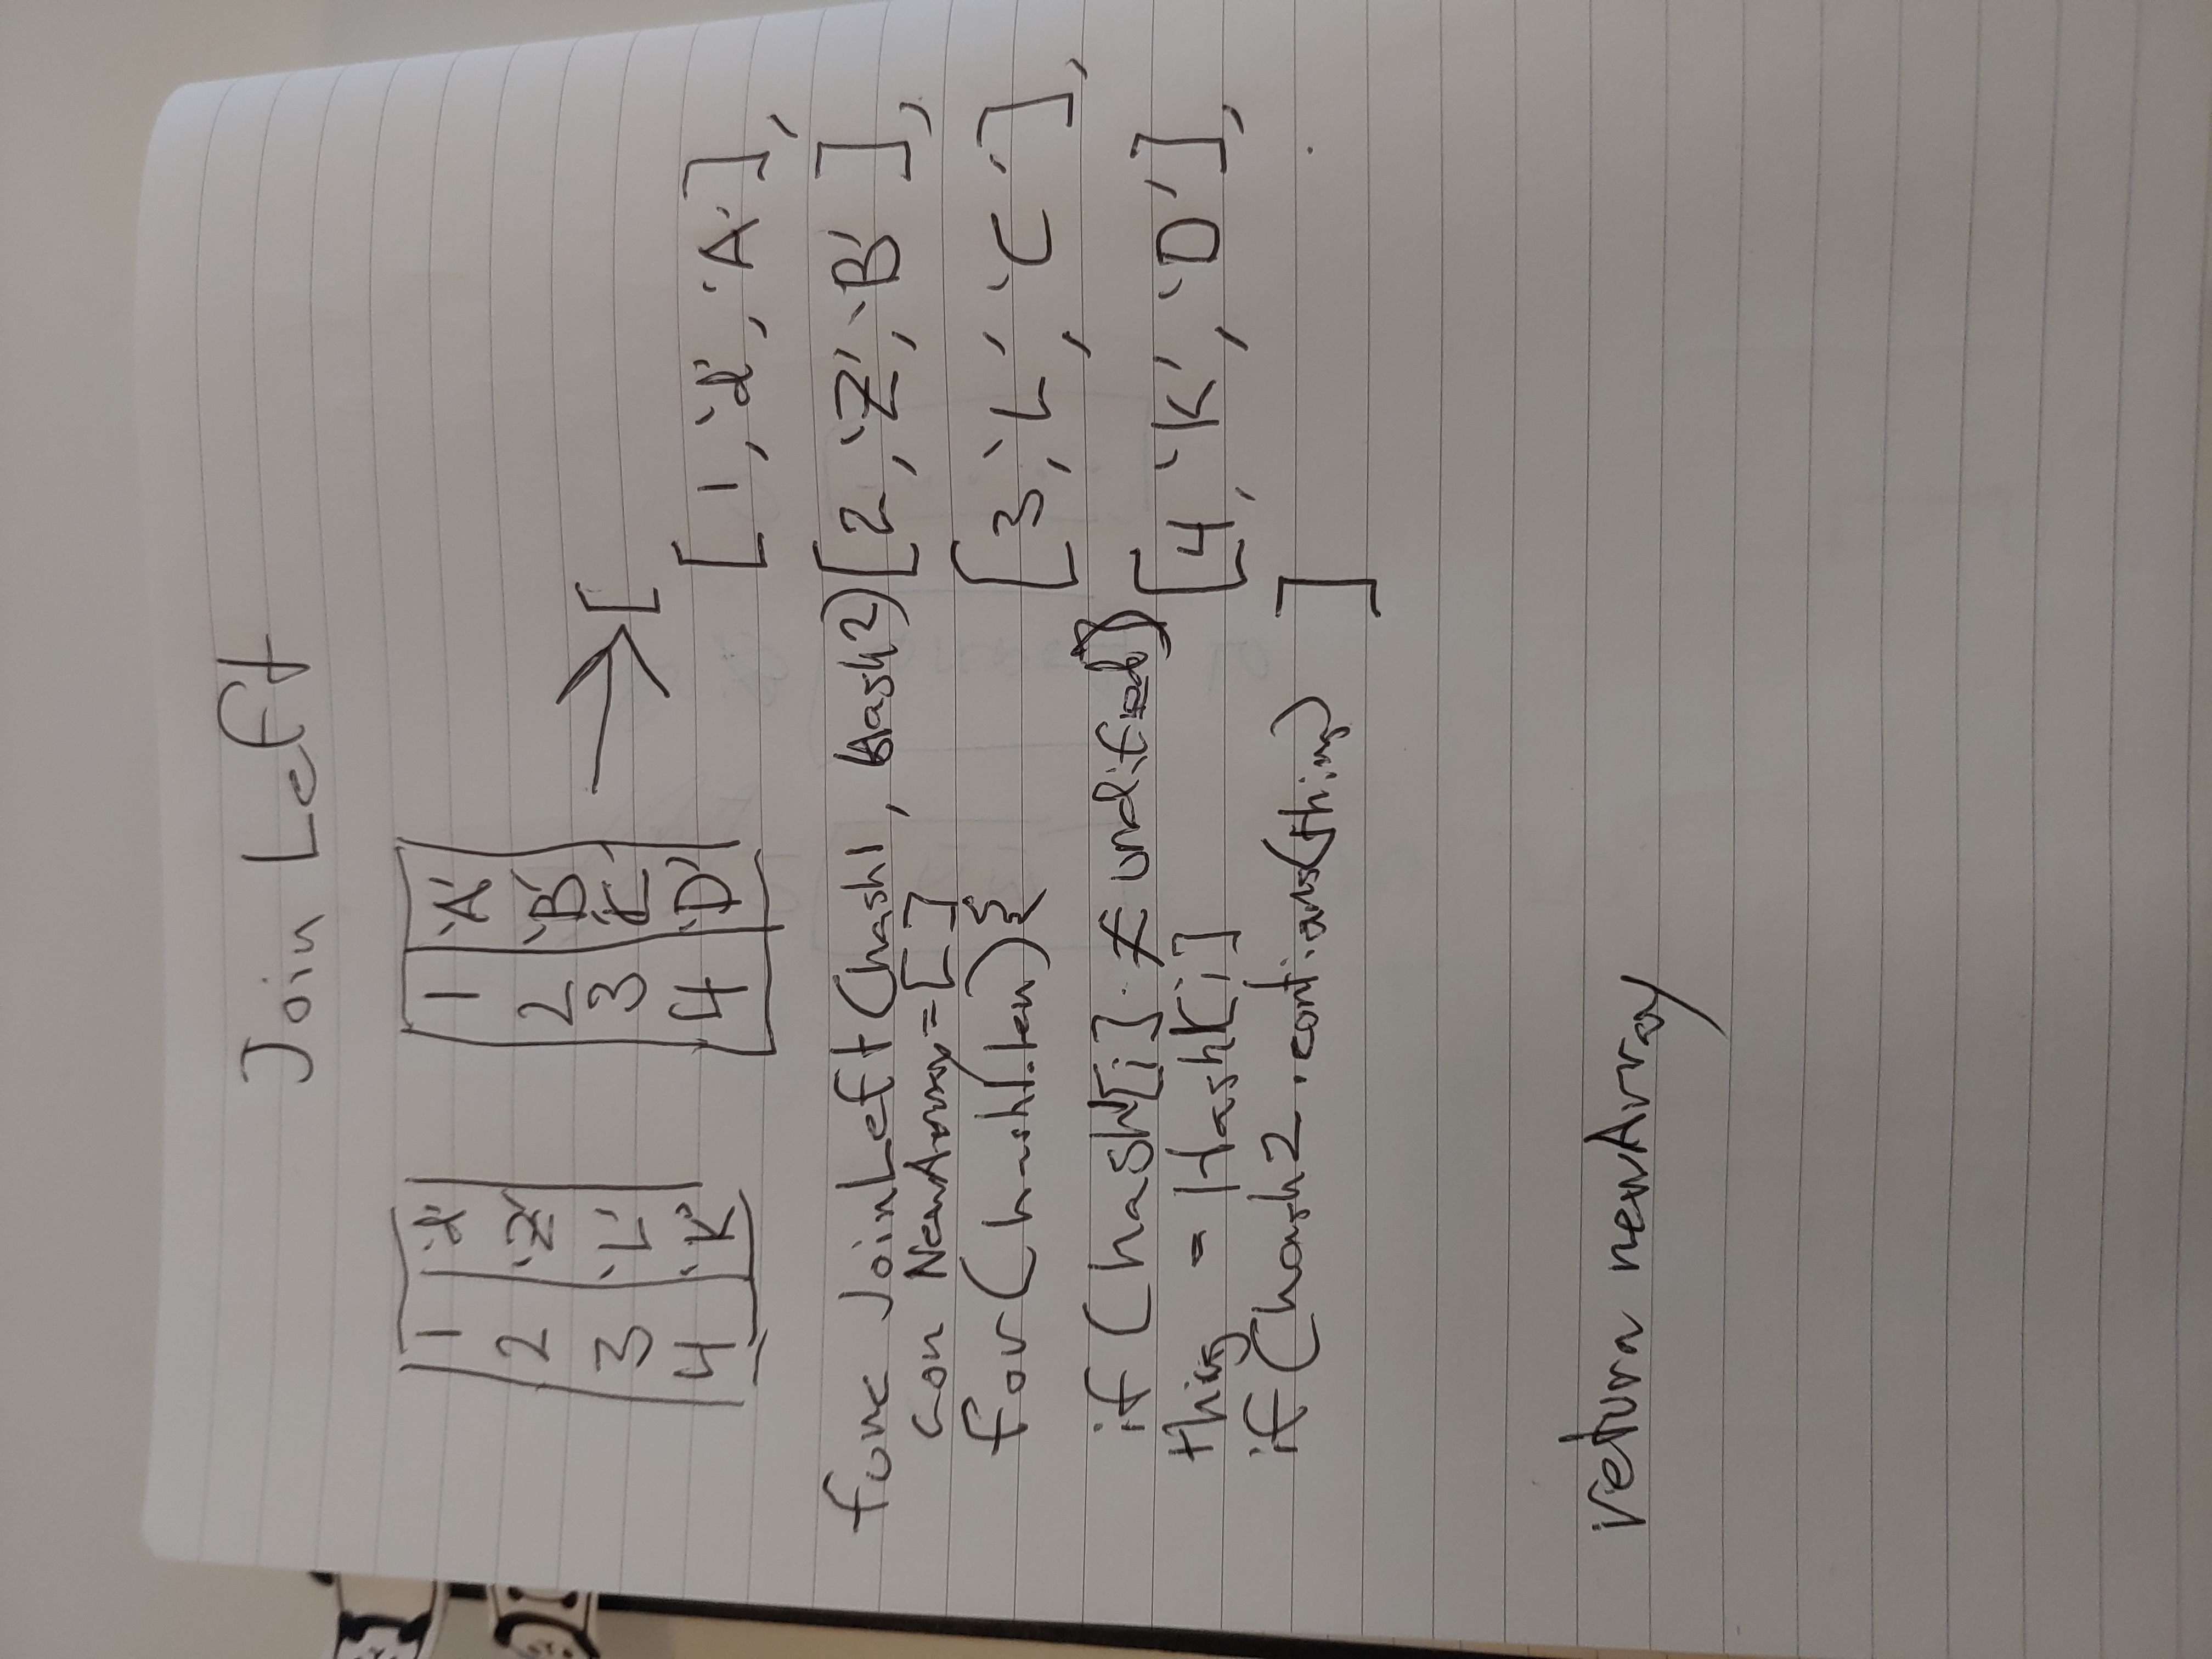 Join Left
1 'd'
2 'Z'
3 'L'
4 'K'
1 'A'
2 'B'
3 'C'
4 'D'
[
[1, 'd', 'A'],
[2, 'Z', 'B'],
[3, 'L', 'C'],
[4, 'K', 'D'],
]
func JoinLeft(hash1, Hash2)
con NewArray = []
for(hash1.len){
if (hash[i] ≠ undified)
thing = Hash[i]
if (hash2.contians(thing)
return newArray